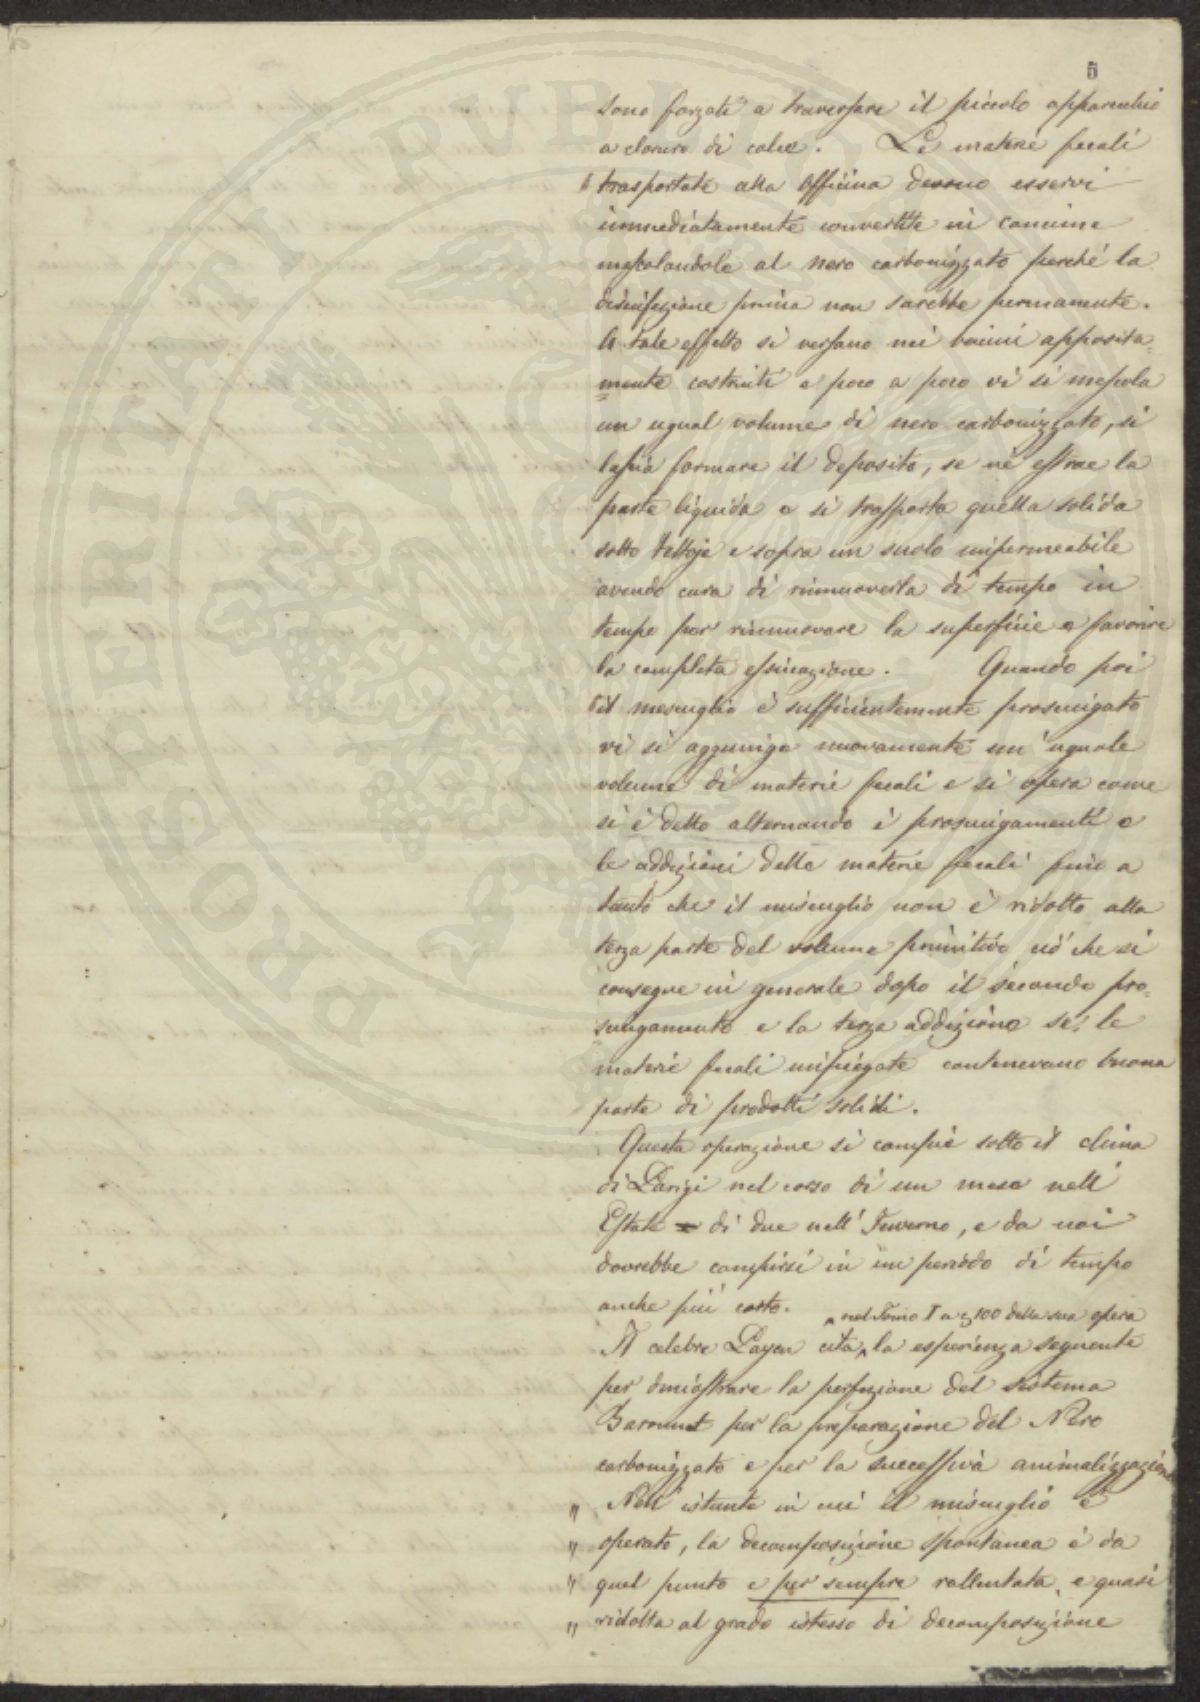 5
sono forzati a traversare il piccolo apparecchio
a cloruro di calce. Le materie fecali
trasportate alla officina devono esservi
immediatamente convertite in concime
mescolandole al nero carbonizzato perché la
disinfezione prima non sarebbe permanente.
A tale effetto si versano nei bacini apposita=
=mente costruiti e poco a poco vi si mescola
un ugual volume di nero carbonizzato, si
lascia formare il deposito, se ne estrae la
parte liquida e si trasporta quella solida
sotto tettoje e sopra un suolo impermeabile
avendo cura di rimuoverla di tempo in
tempo per rinnuovare la superficie e favorire
la completa essicazione. Quando poi
il mescuglio è sufficientemente prosciugato
vi si aggiunge nuovamente un' uguale
volume di materie fecali e si opera come
si è detto alternando i prosciugamenti e
le addizioni delle materie fecali fino a
tanto che il miscuglio non è ridotto alla
terza parte del volume primitivo ciò che si
consegue in generale dopo il secondo pro=
sciugamento e la terza addizione se le
materie fecali impiegate contenevano buona
parte di prodotti solidi.
Questa operazione si compie sotto il clima
di Parigi nel corso di un mese nell'
Estate di due nell' Inverno, e da noi
dovrebbe compirsi in un periodo di tempo
anche più corto.
nel Tomo I a 100 della sua opera
Il celebre Payen cita la esperienza seguente
per dimostrare la perfezione del sistema
per la preparazione del Nero
carbonizzato e per la successiva animalizzazione
" Nell' istante in cui il miscuglio è
" operato, la decomposizione spontanea è da
" quel punto e per sempre rallentata, e quasi
" ridotta al grado istesso di decomposizione
POSPERITATI PVBLICAE